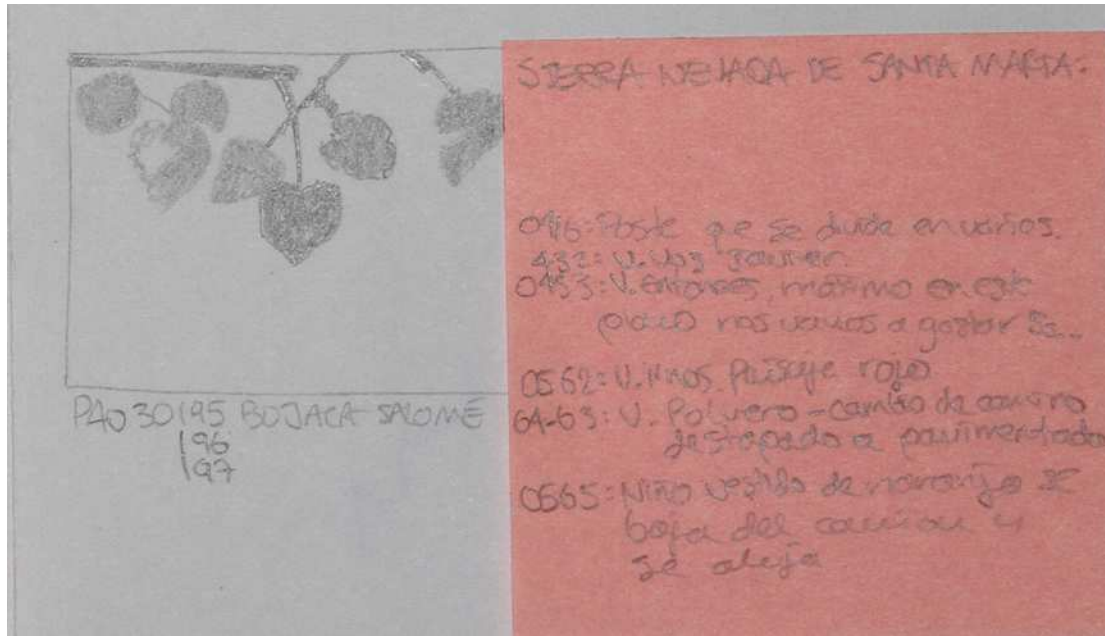 PAO30195 BOJACA SALOMÉ
196
197
SIERRA NEVADA DE SANTA MARTA:
0416: Poste que se divide en varios.
432: V.
0453: V. Entonces, máximo en este
nos vamos a gastar
0562: V. Niños Paisaje rojo
64-63: V. Polvero - cambio de camino
destapado a pavimentado
0565: Niño vestido de naranja se
baja del camión y
se aleja